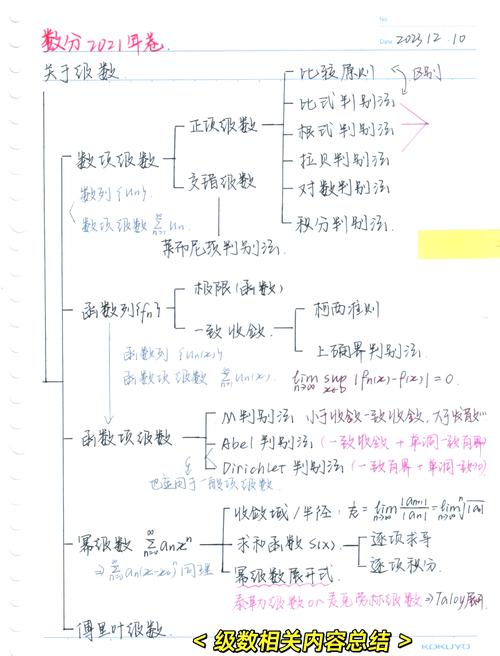 数分2021年卷.
No
Date 2023.12.10
关于级数
比较原则 区别
比式判别法
正项级数
根式判别法
数项级数
拉贝判别法
交错级数
对数判别法
数列{un}
数项级数 ∞∑n=1 un
积分判别法
莱布尼茨判别法
极限(函数)
函数列{fn}
柯西准则
一致收敛
上确界判别法
函数列 {un(x)}
函数项级数 ∞∑n=1 un(x)
lim n→∞ sup x∈D |fn(x)-f(x)|=0.
M判别法
小于收敛一致收敛,大于发散
函数项级数
Abel 判别法 (一致收敛 + 单调一致有界)
Dirichlet 判别法 (一致有界+单调一致→0)
也适用于一般项级数
收敛域/半径: 1/R = lim n→∞ |an+1|/|an| = lim n→∞ n√|an|
幂级数 ∞∑n=0 anxⁿ
求和函数S(x)
逐项求导
逐项积分
⇒ ∞∑n=0 an(x-x0)ⁿ 同理
幂级数展开式
泰勒级数or麦克劳林级数 ⇒Taloy展开
傅里叶级数
<级数相关内容总结>
KOKUYO